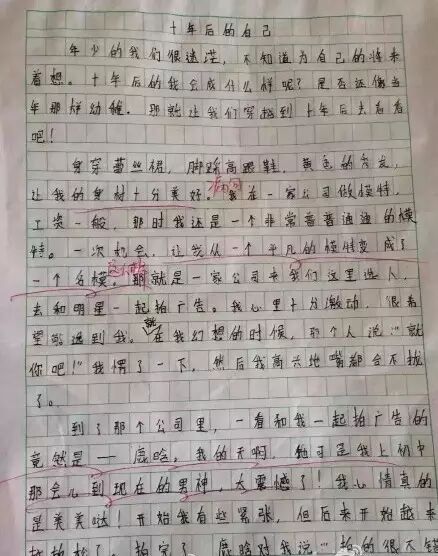 十年后的自己
年少的我们很迷茫，不知道为自己的将来
着想。十年后的我会成什么样呢？是否还像当
年那样幼稚。那就让我们穿越到十年后去看看
吧！
身穿蕾丝裙，脚踩高跟鞋，黄色的秀发，
让我的身材十分美好。我在一家公司做模特，
病句
工资一般，那时我还是一个非常普普通通的模
特。一次机会，让我从一个平凡的模特变成了
一个名模。那就是一家公司来我们这里选人，
去和明星一起拍广告。我心里十分激动，很希
望能选到我。就在我幻想的时候，那个人说："就
你吧！"我愣了一下，然后我高兴地嘴都合不拢
了。
到了那个公司里，一看和我一起拍广告的
竟然是——鹿晗，我的天啊，他可是我上初中
那会儿到现在的男神，太震憾了！我心情真的
是美美哒！开始我有些紧张，但后来开始越来